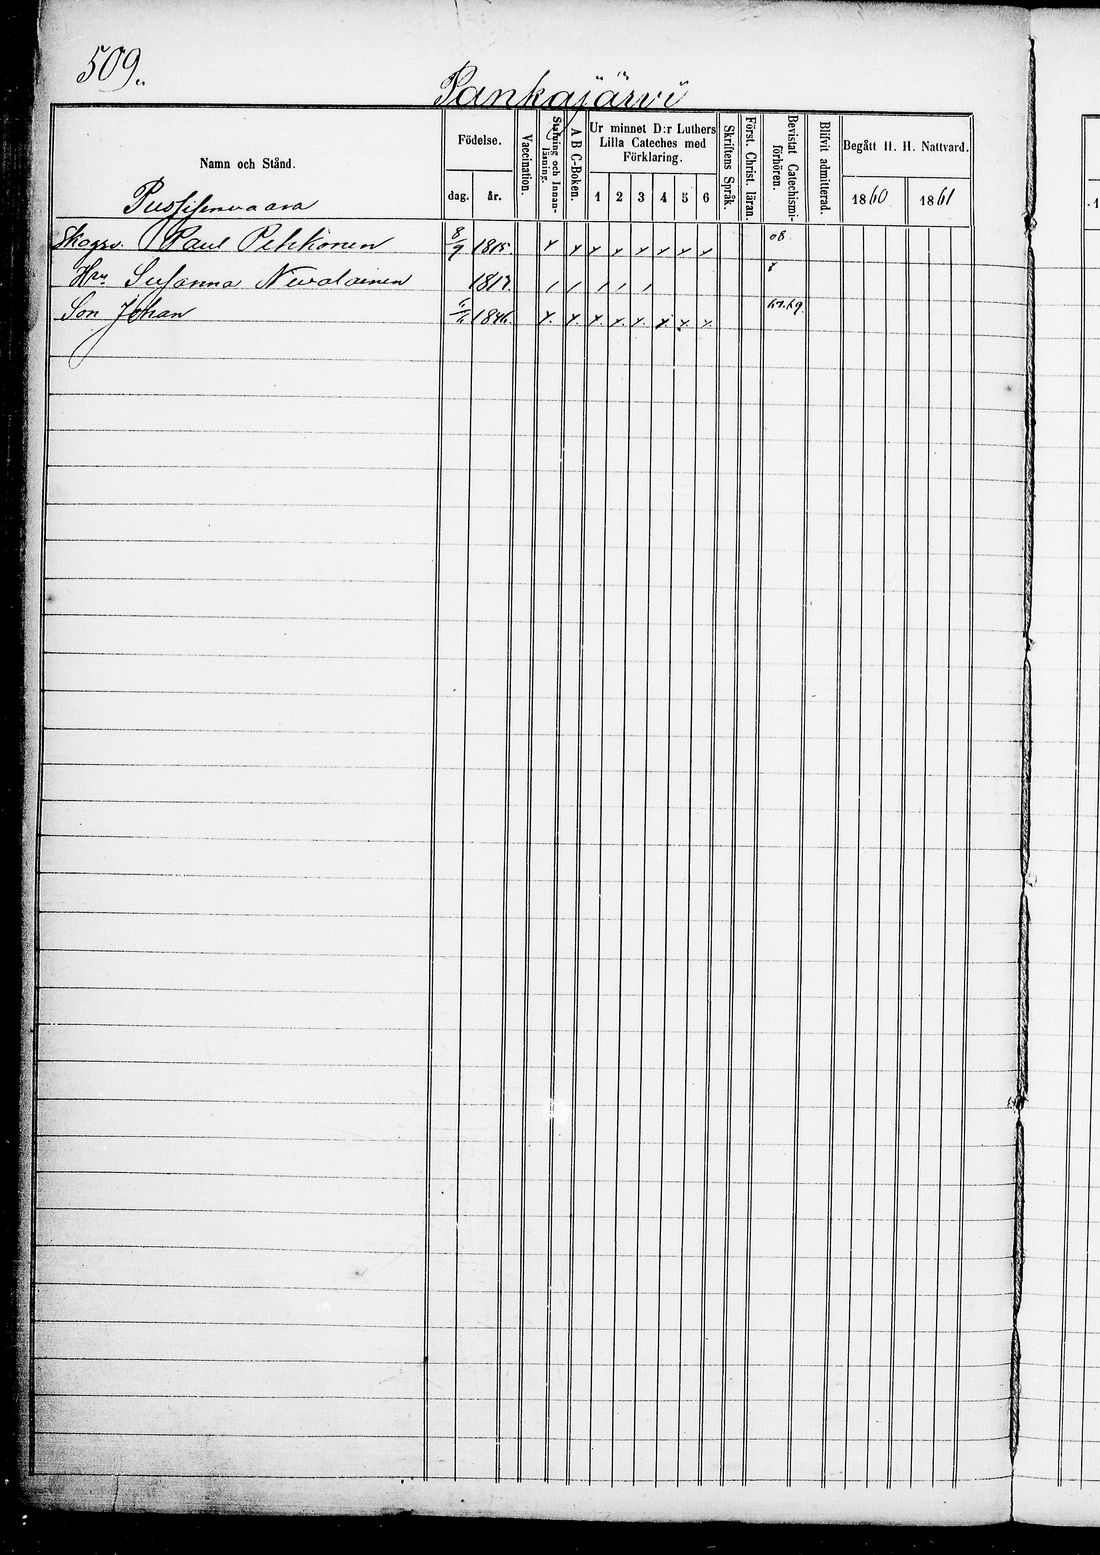 509.
Pankajärvi
Namn och Stånd.
Födelse.
dag. år.
Vaccination.
Stafning och Innan-läsning.
A B C-Boken.
Ur minnet D:r Luthers
Lilla Cateches med
Förklaring.
1 2 3 4 5 6
Skriftens Språk.
Först. Christ. läran.
Bevistat Catechismi-förhören.
Blifvit admitterad.
Begått H. H. Nattvard.
1860 1861
Pussisenvaara
Skogsv. Paul Pehkonen 8/9 1815.
Hru Susanna Nevalainen 1817.
Son Johan 1846.